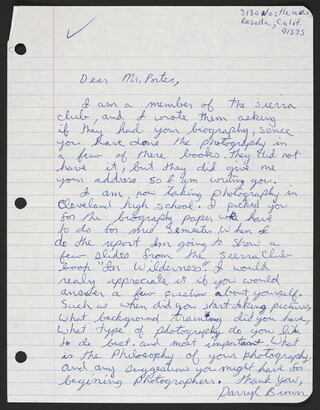 Reseda, Calif.
91335
Dear Mr. Porter,
I am a member of the sierra
club, and I wrote them asking
if they had your biography, sence
you have done the photography in
a few of there books. they did not
have it, but they did give me
your address so I am writing you.
I am now taking photography in
Cleveland high school. I picked you
for the biography paper we have
to do for mid semester. When I
do the report Im going to show a
few slides from the sierra club
boop "In Wilderness". I would
realy appreciate it if you would
answer a few question about yourself.
Such as when did you start taking pictures,
What background training did you have,
What type of photography do you like
to do best. and most important. What
is the Philosophy of your photography,
and any suggestions you might have for
begining photographers. Thank you,
Darryl Brown